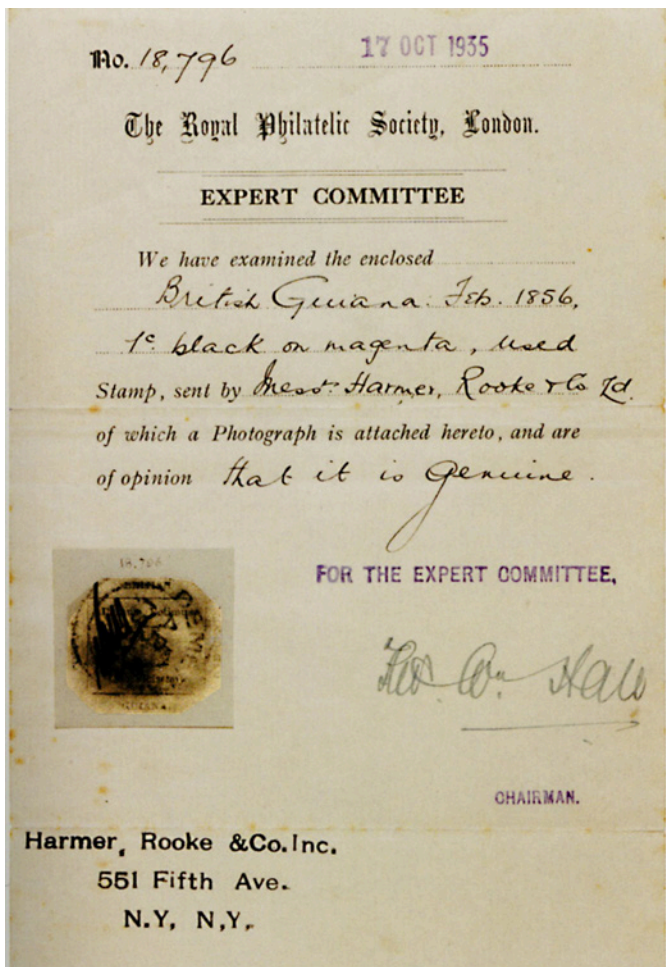 No. 18,796 17 OCT 1935
The Royal Philatelic Society, London.
EXPERT COMMITTEE
We have examined the enclosed
British Guiana. Feb. 1856,
1c. black on magenta, used
Stamp, sent by Messrs. Harmer, Rooke & Co Ld.
of which a Photograph is attached hereto, and are
of opinion that it is Genuine.
18,796
DEME
GUIANA
FOR THE EXPERT COMMITTEE,
Hall
CHAIRMAN.
Harmer, Rooke &Co.Inc.
551 Fifth Ave.
N.Y, N,Y,.